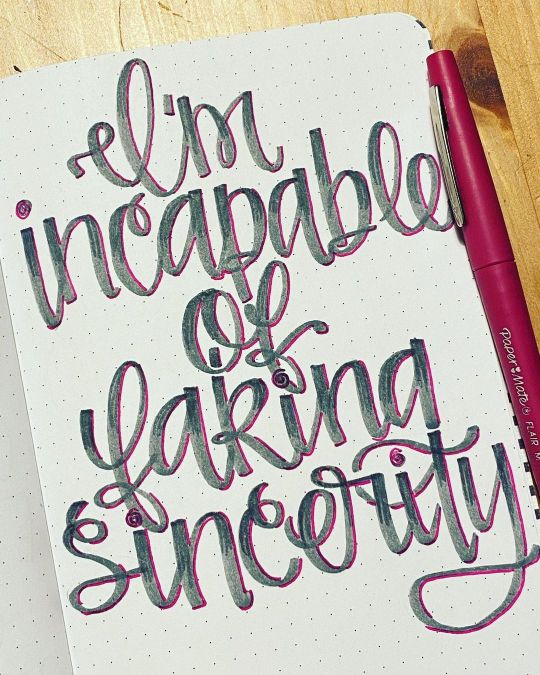 I'm
incapable
of
faking
sincerity
Paper Mate FLAIR M